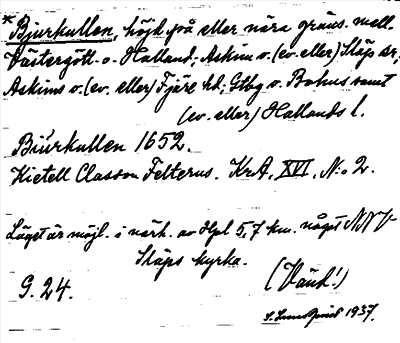 * Bjurkullen, höjd på eller nära gräns. mell.
Västergötl. o. Halland; Askim o. (ev. eller) Släps sr;
Askims o. (ev. eller) Fjäre hd; Gtbg o. Bohus samt
(ev. eller) Hallands l.
Biurkullen 1652.
Kietell Classon Felterus. KrA, XVI, N:o 2.
Läget är möjl. i närh. av Hpl 5,7 km. något NNV
Släps kyrka.
(Vänd!)
G. 24.
1937.